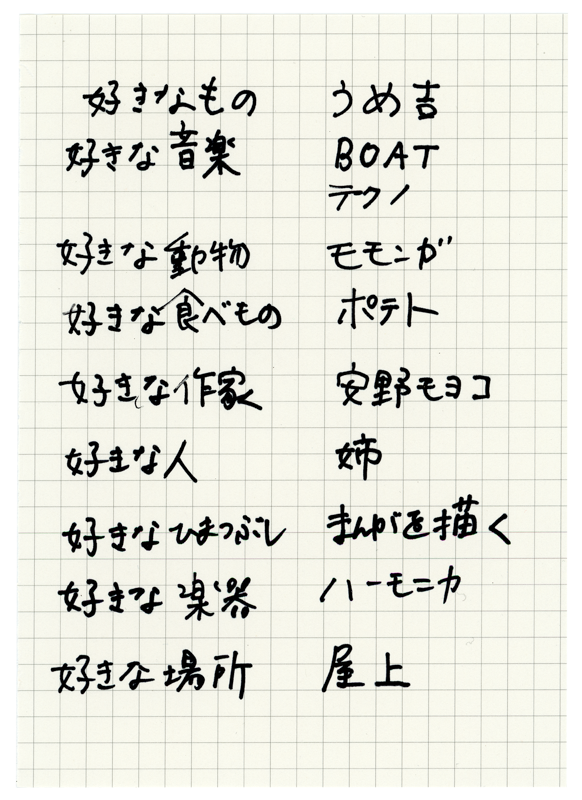 好きなもの うめ吉
好きな音楽 BOAT
テクノ
好きな動物 モモンガ
好きな食べもの ポテト
好きな作家 安野モヨコ
好きな人 姉
好きなひまつぶし まんがを描く
好きな楽器 ハーモニカ
好きな場所 屋上